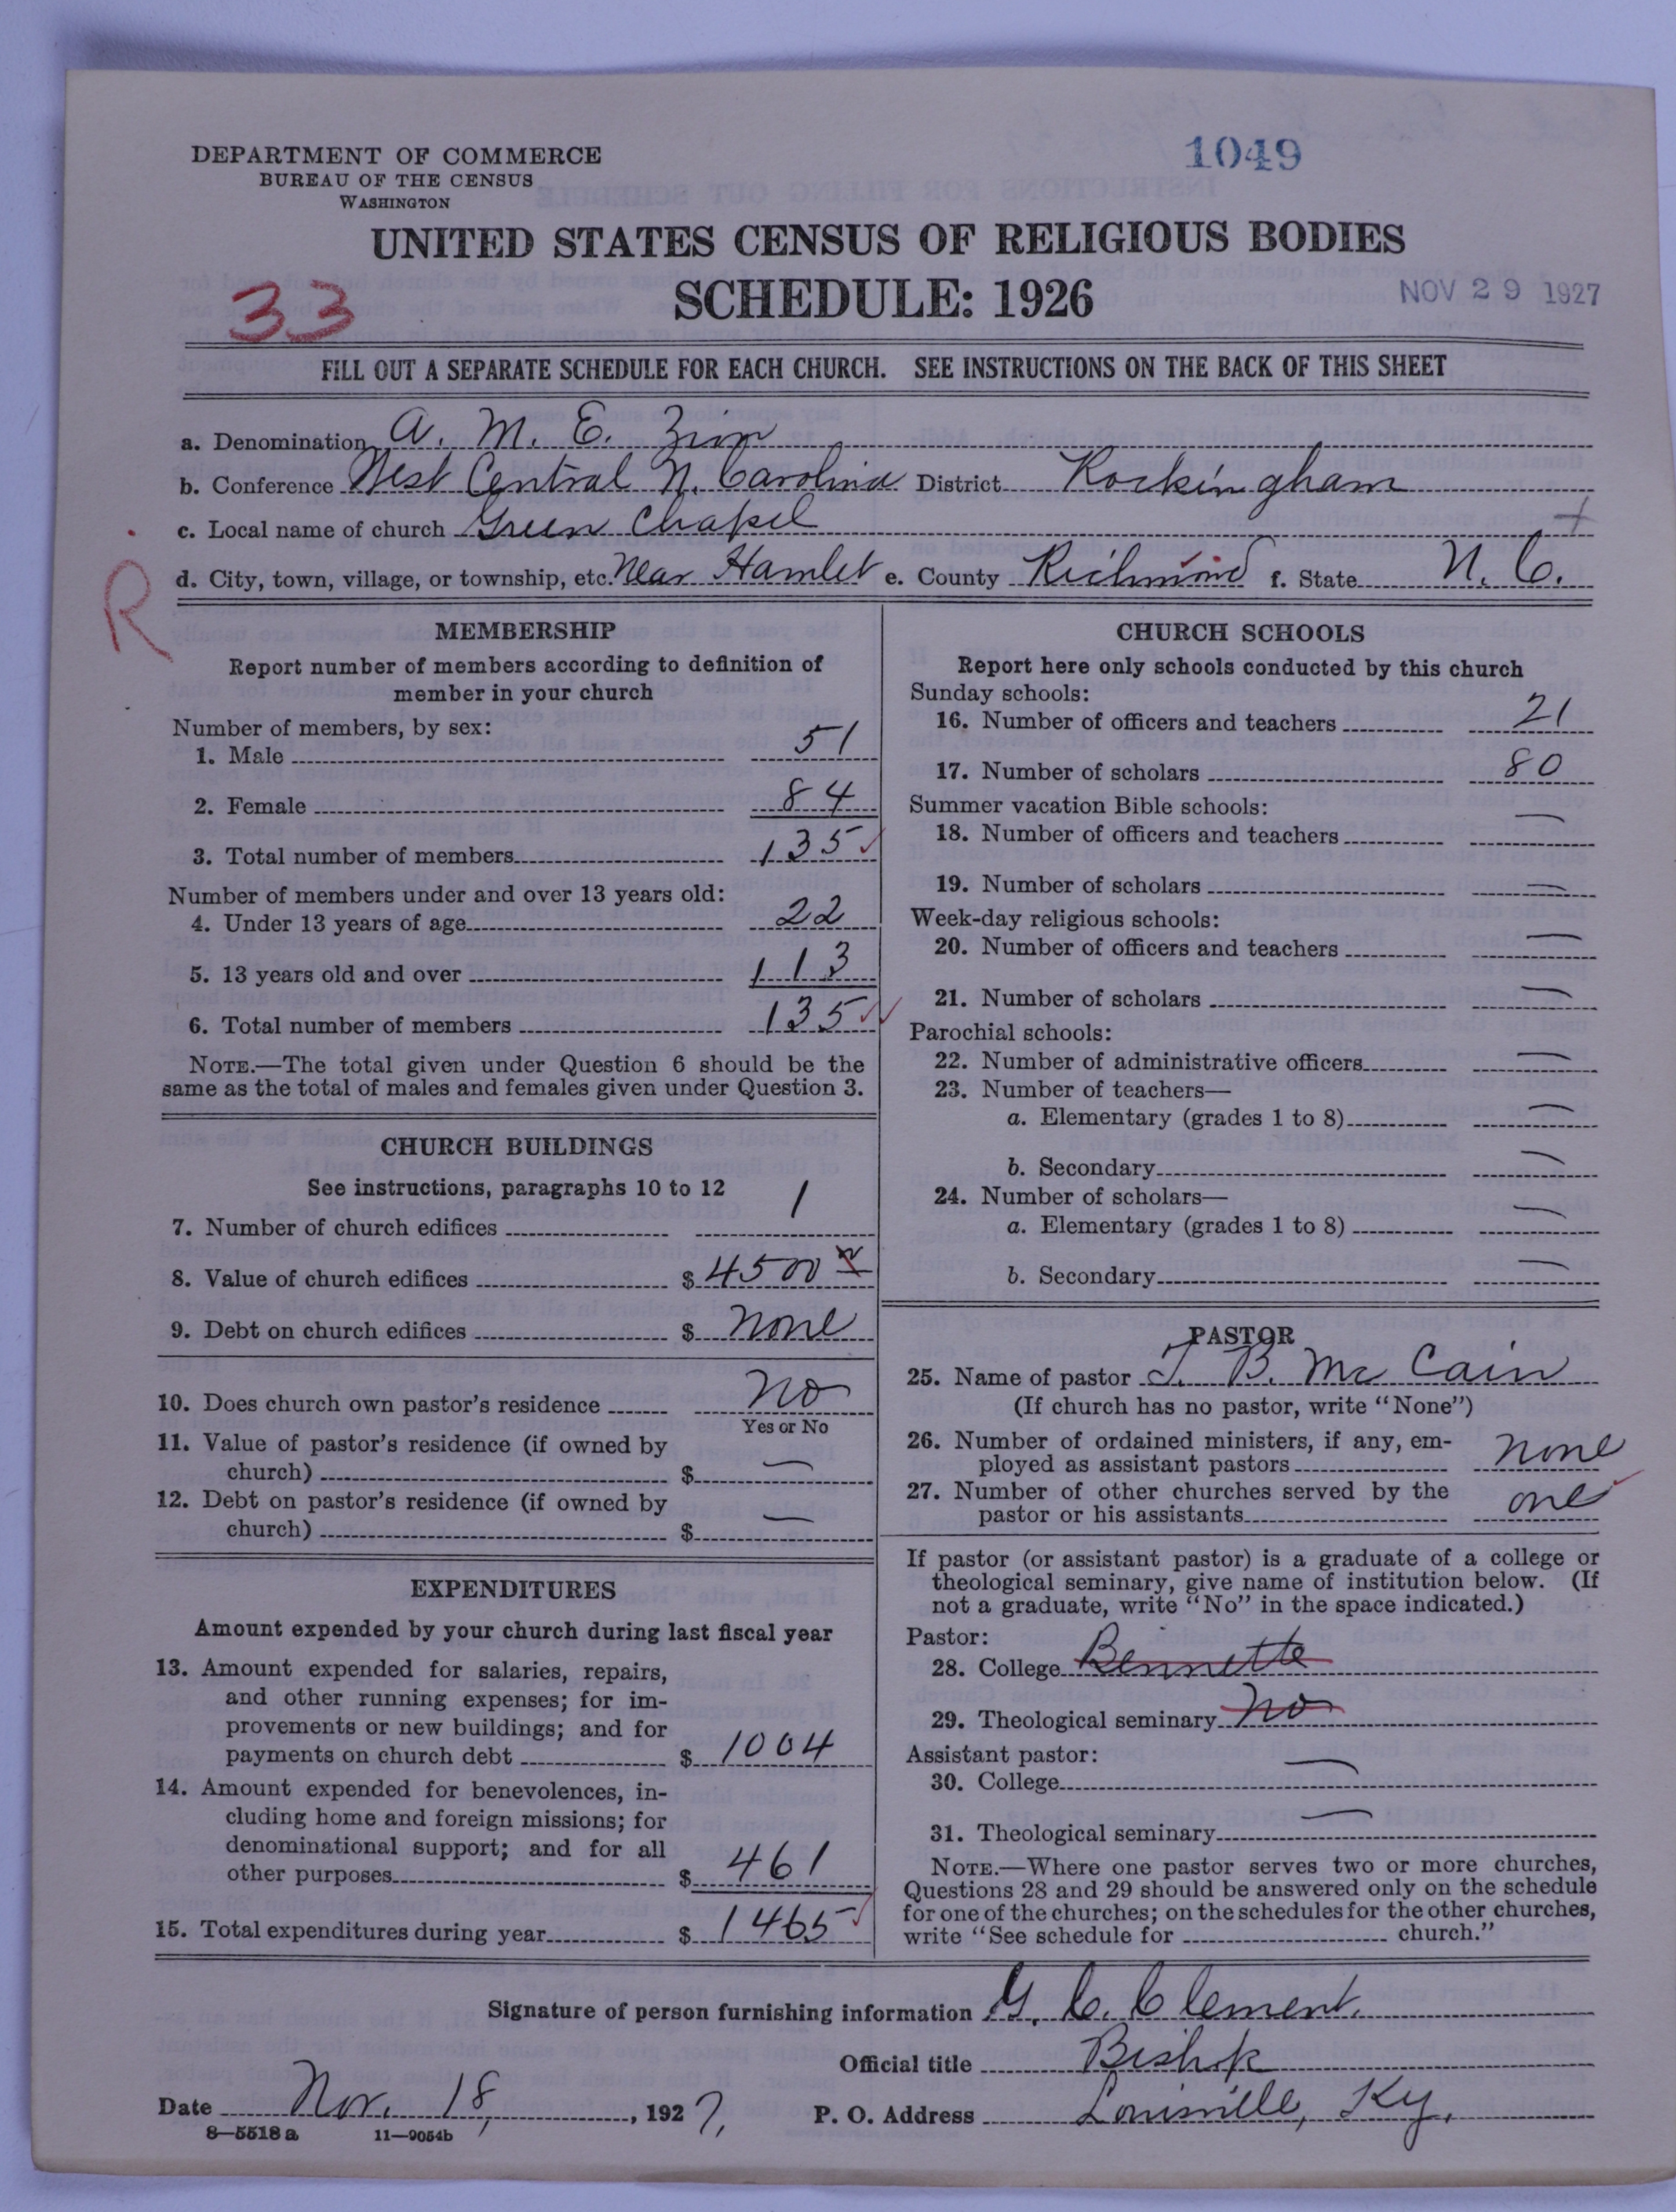 1049
DEPARTMENT OF COMMERCE
BUREAU OF THE CENSUS
WASHINGTON
UNITED STATES CENSUS OF RELIGIOUS BODIES
SCHEDULE: 1926
NOV 29 1927
33
FILL OUT A SEPARATE SCHEDULE FOR EACH CHURCH. SEE INSTRUCTIONS ON THE BACK OF THIS SHEET
a. Denomination A. M. E. Zion
b. Conference West Central N. Carolina District Rockingham
c. Local name of church Green Chapel
d. City, town, village, or township, etc. Near Hamlet e. County Richmond f. State N. C.
R
MEMBERSHIP
Report number of members according to definition of
member in your church
Number of members, by sex:
1. Male 51
2. Female 84
3. Total number of members 135
Number of members under and over 13 years old:
4. Under 13 years of age 22
5. 13 years old and over 113
6. Total number of members 135
NOTE.—The total given under Question 6 should be the
same as the total of males and females given under Question 3.
CHURCH BUILDINGS
See instructions, paragraphs 10 to 12
7. Number of church edifices 1
8. Value of church edifices $ 4500
9. Debt on church edifices $ None
10. Does church own pastor's residence No
Yes or No
11. Value of pastor's residence (if owned by
church) $ —
12. Debt on pastor's residence (if owned by
church) $ —
EXPENDITURES
Amount expended by your church during last fiscal year
13. Amount expended for salaries, repairs,
and other running expenses; for im-
provements or new buildings; and for
payments on church debt $ 1004
14. Amount expended for benevolences, in-
cluding home and foreign missions; for
denominational support; and for all
other purposes $ 461
15. Total expenditures during year $ 1465
CHURCH SCHOOLS
Report here only schools conducted by this church
Sunday schools:
16. Number of officers and teachers 21
17. Number of scholars 80
Summer vacation Bible schools:
18. Number of officers and teachers —
19. Number of scholars —
Week-day religious schools:
20. Number of officers and teachers —
21. Number of scholars —
Parochial schools:
22. Number of administrative officers —
23. Number of teachers—
a. Elementary (grades 1 to 8) —
b. Secondary —
24. Number of scholars—
a. Elementary (grades 1 to 8) —
b. Secondary —
PASTOR
25. Name of pastor J. B. McCain
(If church has no pastor, write "None")
26. Number of ordained ministers, if any, em-
ployed as assistant pastors None
27. Number of other churches served by the
pastor or his assistants one
If pastor (or assistant pastor) is a graduate of a college or
theological seminary, give name of institution below. (If
not a graduate, write "No" in the space indicated.)
Pastor:
28. College Bennette
29. Theological seminary No
Assistant pastor:
30. College —
31. Theological seminary —
NOTE.—Where one pastor serves two or more churches,
Questions 28 and 29 should be answered only on the schedule
for one of the churches; on the schedules for the other churches,
write "See schedule for church."
Signature of person furnishing information G. C. Clement.
Official title Bishop
Date Nov. 18, 1927, P. O. Address Louisville, Ky.
8—5518 a 11—9054b